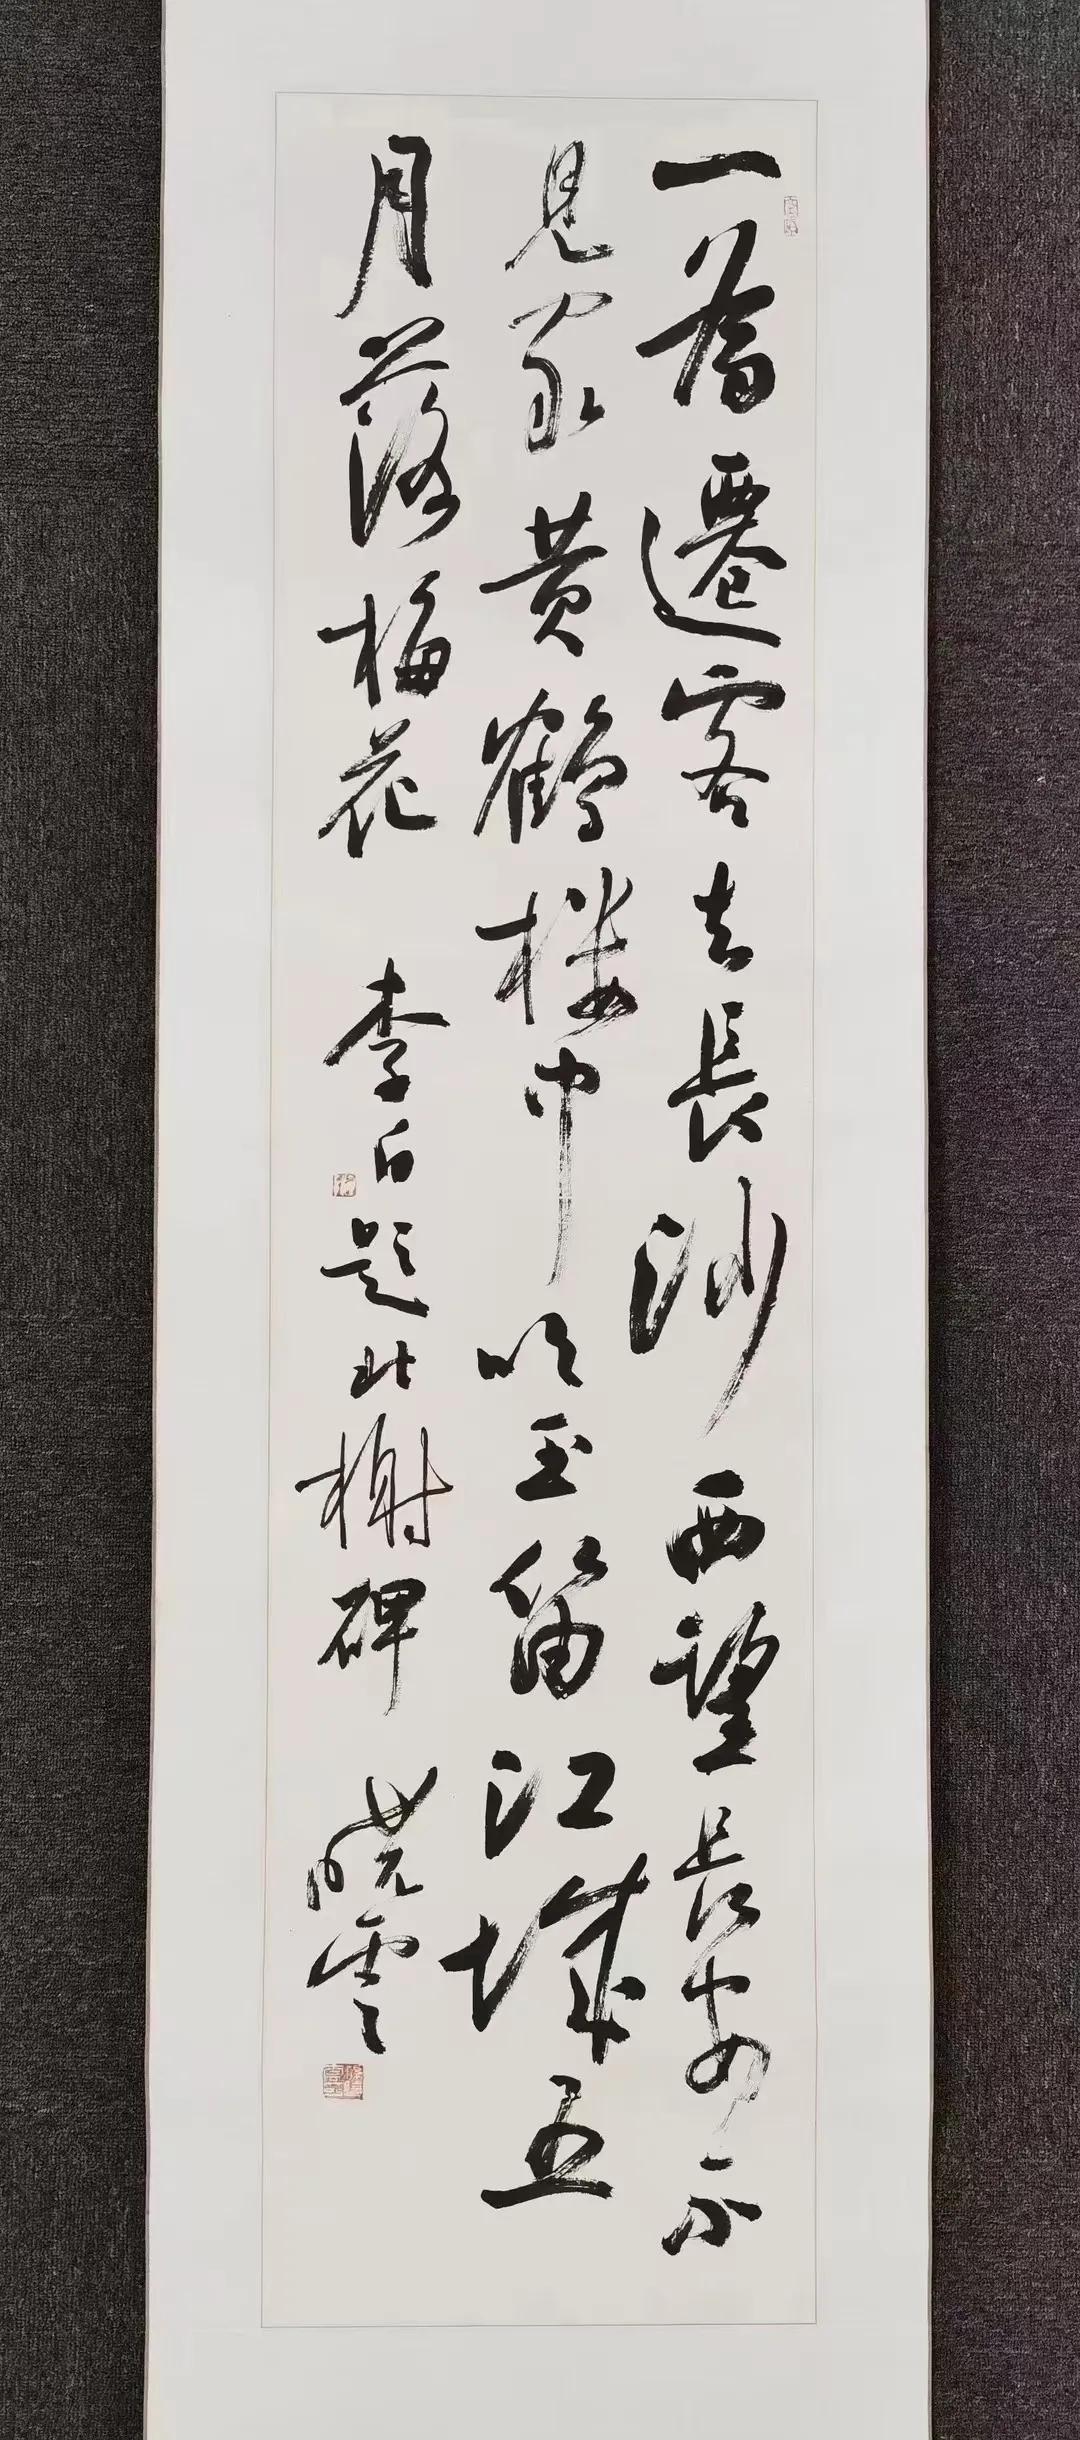 一為遷客去長沙西望長安不
見家黄鶴楼中吹玉笛江城五
月落梅花 李白題北榭碑 曉雲